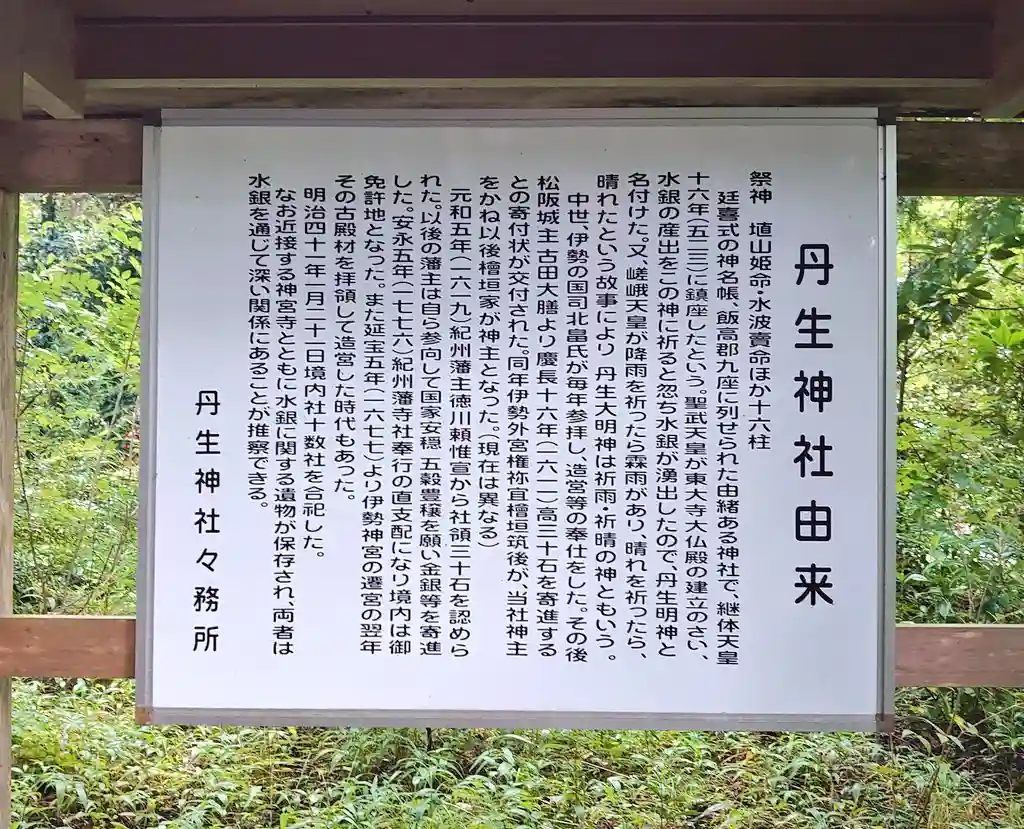 丹生神社由来
祭神　埴山姫命・水波賣命ほか十六柱
廷喜式の神名帳、飯高郡九座に列せられた由緒ある神社で、継体天皇
十六年(五二三)に鎮座したという。聖武天皇が東大寺大仏殿の建立のさい、
水銀の産出をこの神に祈ると忽ち水銀が湧出したので、丹生明神と
名付けた。又、嵯峨天皇が降雨を祈ったら霖雨があり、晴れを祈ったら、
晴れたという故事により 丹生大明神は祈雨・祈晴の神ともいう。
中世、伊勢の国司北畠氏が毎年参拝し、造営等の奉仕をした。その後
松阪城主古田大膳より慶長十六年(一六一一)高三十石を寄進する
との寄付状が交付された。同年伊勢外宮権祢宜檜垣筑後が、当社神主
をかね以後檜垣家が神主となった。(現在は異なる)
元和五年(一六一九)紀州藩主徳川頼惟宣から社領三十石を認めら
れた。以後の藩主は自ら参向して国家安穏 五穀豊穣を願い金銀等を寄進
した。安永五年(一七七六)紀州藩寺社奉行の直支配になり境内は御
免許地となった。また延宝五年(一六七七)より伊勢神宮の遷宮の翌年
その古殿材を拝領して造営した時代もあった。
明治四十一年一月二十日境内社十数社を合祀した。
なお近接する神宮寺とともに水銀に関する遺物が保存され、両者は
水銀を通じて深い関係にあることが推察できる。
丹生神社々務所